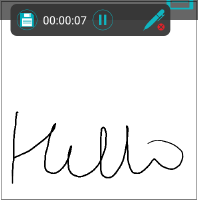 00:00:07
Hello